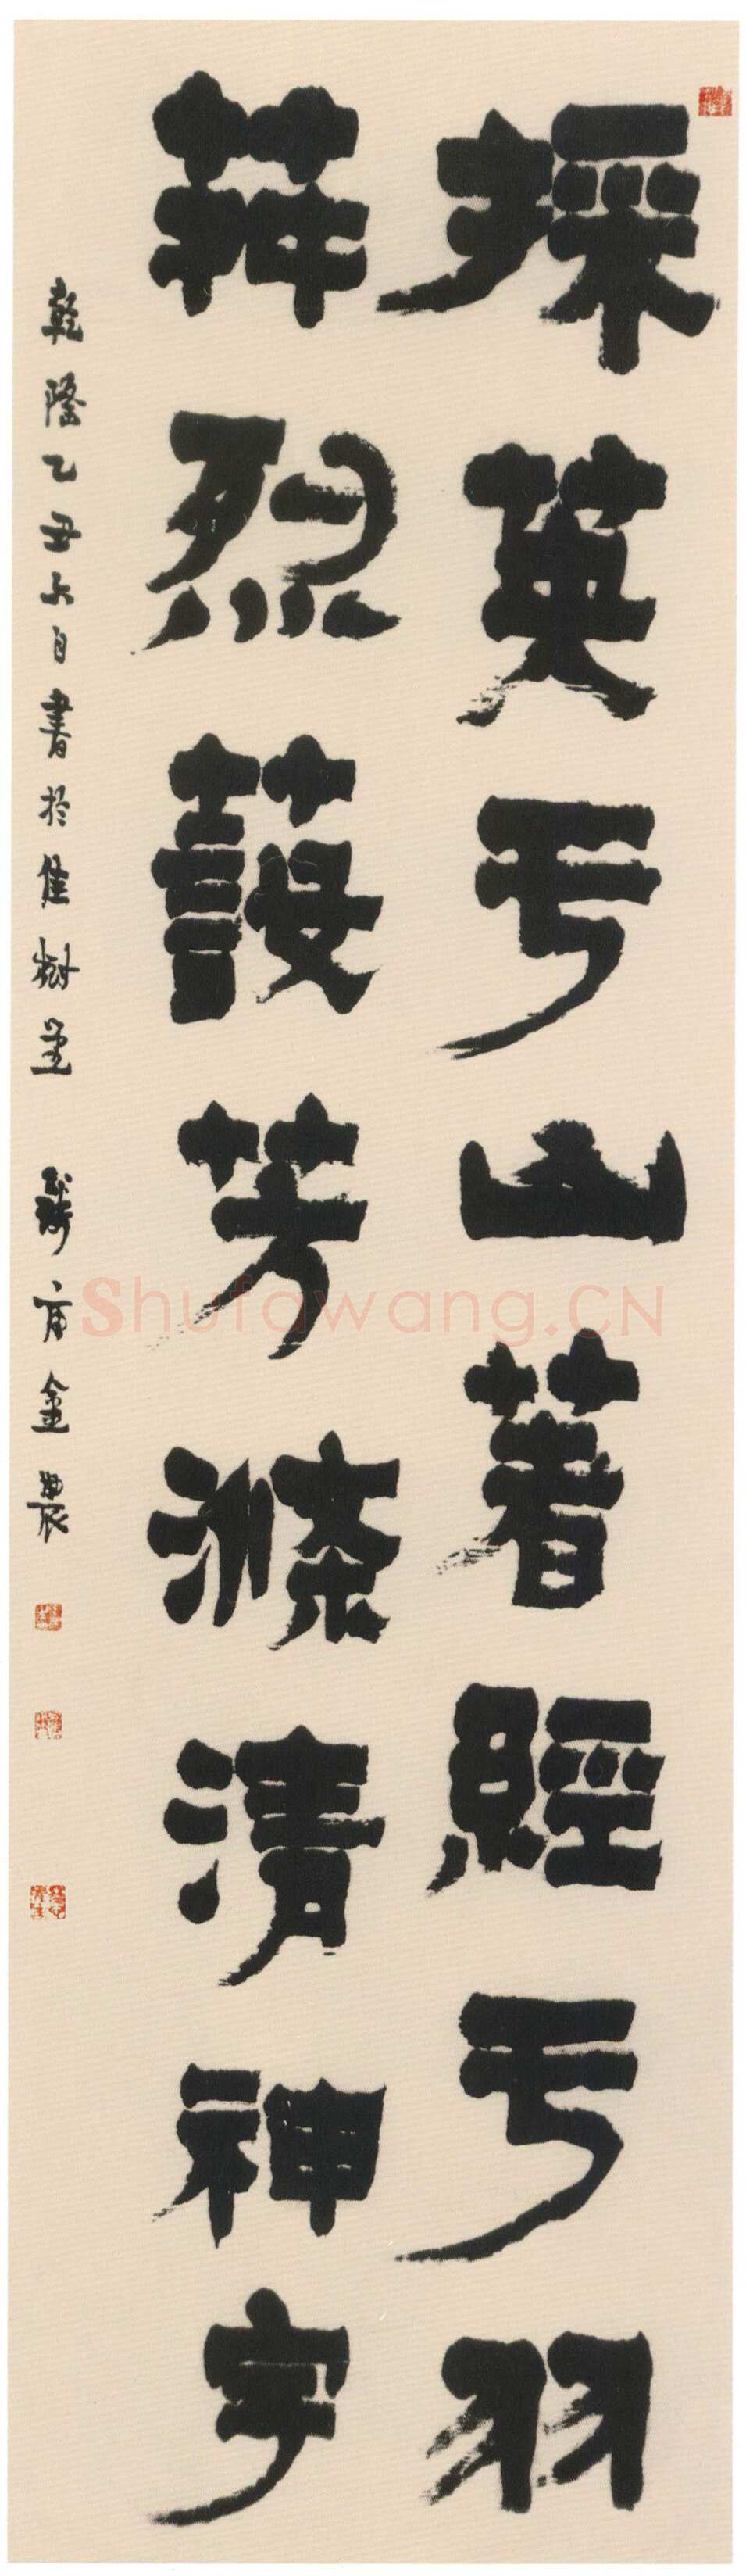 採英于山著經于羽
荈烈蔎芳滌清神宇
乾隆乙丑六月書於佳樹堂 錢唐金農
Shufawang.CN